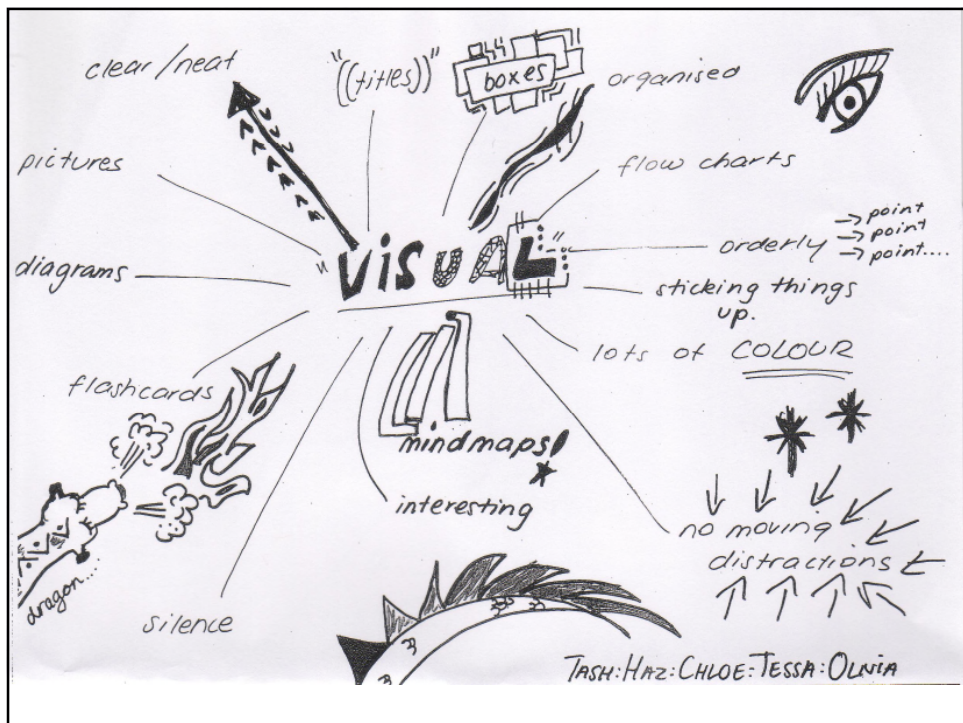 clear/neat
"((titles))"
boxes
organised
pictures
flow charts
"VISUAL"
orderly
→ point
→ point
→ point....
diagrams
sticking things
up.
lots of COLOUR
flashcards
mindmaps!
interesting
no moving
distractions
dragon...
silence
TASH:HAZ:CHLOE:TESSA:OLIVIA